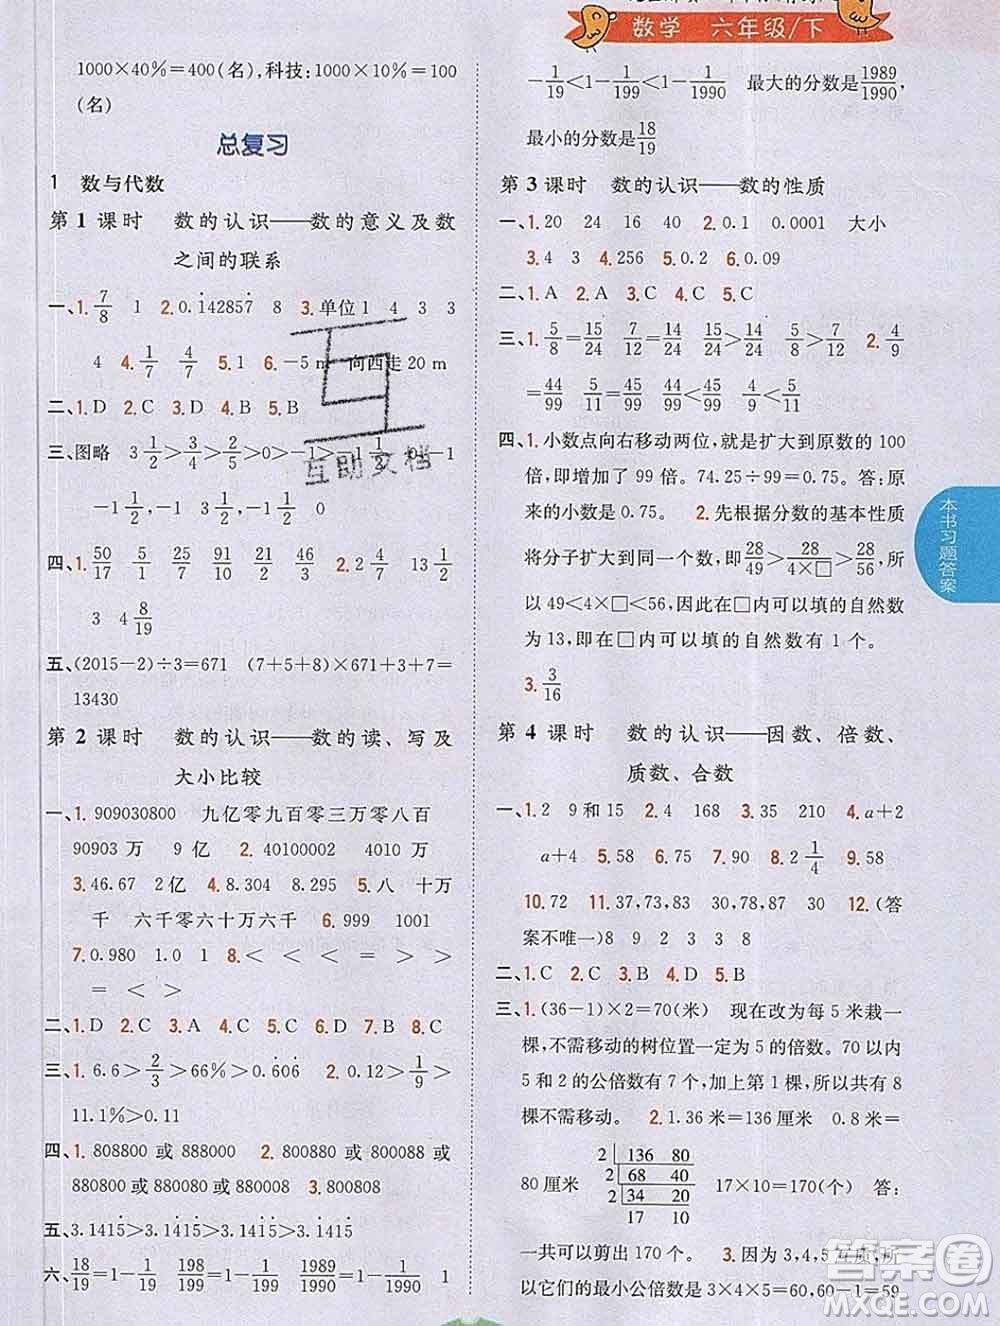 数学 六年级/下
1000×40%=400(名),科技:1000×10%=100
(名)
总复习
1 数与代数
第 1 课时 数的认识——数的意义及数
之间的联系
一、1. 7/8 1 2. 0.1̇42857̇ 8 3. 单位1 4 3 3
4 4. 1/7 4/7 5. 1 6. －5 m 向西走 20 m
二、1. D 2. C 3. C 4. D 5. B
三、图略 3 1/2＞4/3＞2/5＞0＞
－1 1/2,－1 3 1/2,－1 1/2 0
四、1. 50/17 15/5 25/8 77/9 83/19 2. 2 4/7 13 1/2
3 4 8/19
五、(2015－2)÷3=671 (7+5+8)×671+3+7=
13430
第 2 课时 数的认识——数的读、写及
大小比较
一、1. 909030800 九亿零九百零三万零八百
90903 万 9 亿 2. 40100002 4010 万
3. 46.67 2 亿 4. 8.304 8.295 5. 八 十万
千 六千零六十万六千 6. 999 1001
7. 0.980 1.0 1 8. ＜ ＜ ＜ ＜ ＜
＞ ＞ ＞ ＞
二、1. D 2. C 3. C 4. A 5. B 6. A 7. B 8. C
三、1. 6.6＞2/3＞66%＞0.6̇06̇ 2. 1.1＞1/9＞
11.1%＞0.11
四、1. 808800 或 888000 2. 800808 或 888000 或
880800 或 880080 或 880008 3. 800808
五、3.1415̇＞3.141̇5̇＞3.14̇15̇＞3.1̇415̇
六、18/19=1－1/19 198/199=1－1/199 1989/1990=1－1/1990 1
－1/19＜1－1/199＜1－1/1990 最大的分数是1989/1990
最小的分数是18/19
第 3 课时 数的认识——数的性质
一、1. 20 24 16 40 2. 0.1 0.0001 大小
3. 4 3 4. 256 5. 0.2 6. 0.09
二、1. A 2. A 3. C 4. B 5. C
三、1. 5/8=15/24 7/12=14/24 5/8＞7/12 2. 4/9
=44/99 5/11=45/99 4/9＜5/11
四、1. 小数点向右移动两位,就是扩大到原数的 100
倍,即增加了 99 倍。74.25÷99=0.75。答:原
来的小数是 0.75。 2. 先根据分数的基本性质
将分子扩大到同一个数,即28/49＞28/4×□＞28/56,所
以 49＜4×□＜56,因此□内可以填的自然数
为 13,即在□内可以填的自然数有 1 个。
3. 3/16
第 4 课时 数的认识——因数、倍数、
质数、合数
一、1. 2 9 和 15 2. 4 168 3. 35 210 4. a+2
a+4 5. 58 6. 75 7. 90 8. 2 1/4 9. 30
10. 72 11. 37,73,83 30,78,87 30 12. (答
案不唯一)8 9 2 3 3 8
二、1. C 2. C 3. B 4. D 5. B
三、1. (36－1)×2=70(米) 现在改为每 5 米栽一
棵,不需移动的树位置一定为 5 的倍数。70 以内
5 和 2 的公倍数有 7 个,加上第 1 棵,所以共有 8
棵不需移动。 2. 1.36 米=136 厘米 0.8 米=
80 厘米 17×10=170(个) 答:
2 136 80
2 68 40
2 34 20
17 10
一共可以剪出 170 个。 3. 因为 3,4,5 互质,所
以它们的最小公倍数是 3×4×5=60,60－1=59
本书习题答案
互助文档
答案圈
MXQE.COM